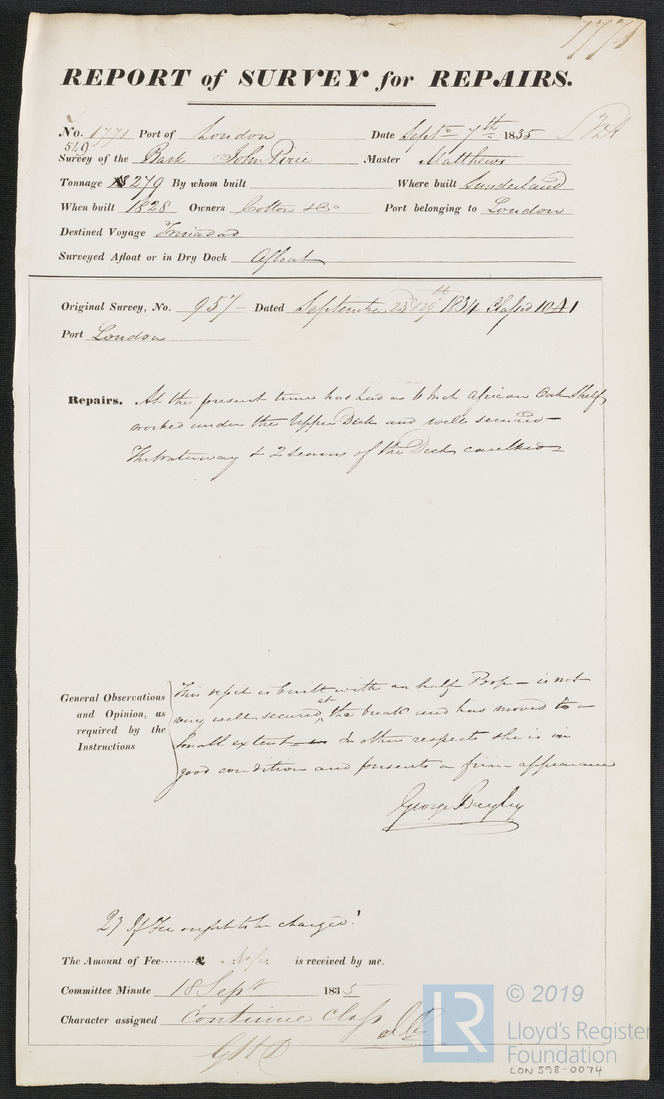 1771
REPORT of SURVEY for REPAIRS.
No. 1771 Port of London Date Septr 7th 1835
549
Survey of the Bark John Pirie Master Matthews
Tonnage 279 By whom built Where built Sunderland
When built 1828 Owners Cotton & Co Port belonging to London
Destined Voyage Trinidad
Surveyed Afloat or in Dry Dock Afloat
Original Survey, No. 957 Dated September 1834 Classed 10 A1
Port London
Repairs. At the present time has had a 6 Inch African Oak Shelf
worked under the Upper Deck and well secured
The Waterway & 2 seams of the Deck caulked
General Observations and Opinion, as required by the Instructions
This vessel is built with an half Poop - is not
very well secured at the break and has moved to a
small extent In other respects she is in
good condition and presents a firm appearance
George Bayley
If Fee ought to be charged?
The Amount of Fee........£ is received by me.
Committee Minute 18 Sept 1835
Character assigned Continue Class
LR © 2019
Lloyd's Register
Foundation
LON 598-0074